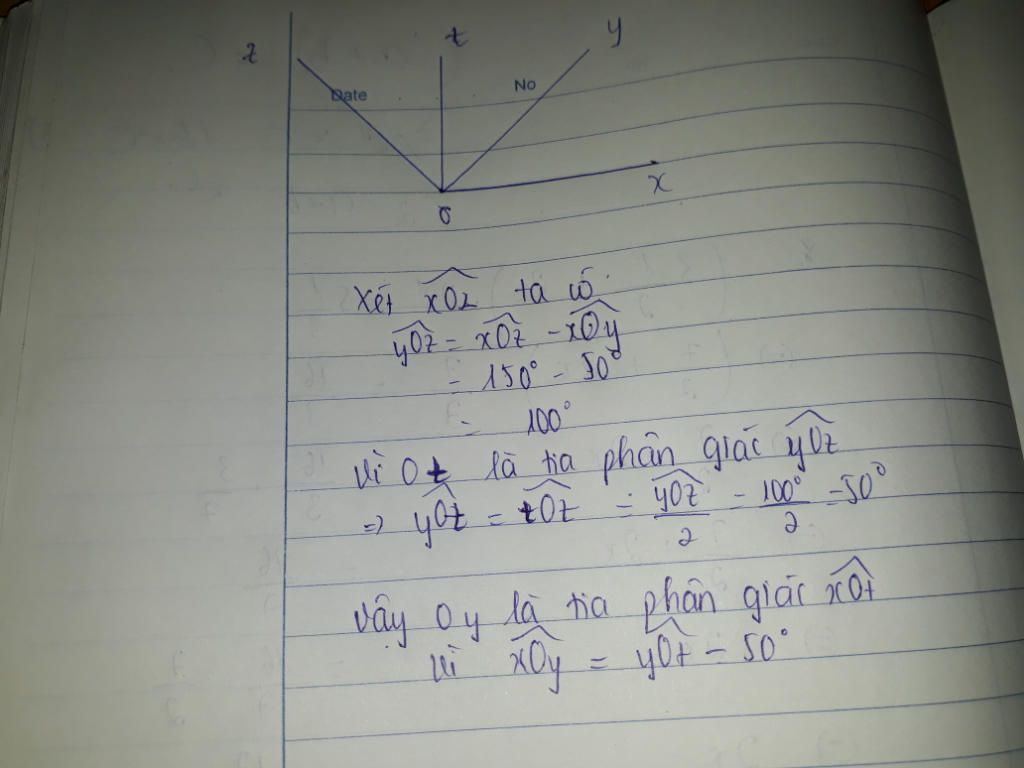 z t y
Date No
O x
Xét xOz ta có
yOz = xOz - xOy
= 150° - 50°
= 100°
Vì Ot là tia phân giác yOz
=> yOt = tOz = yOz/2 = 100°/2 = 50°
Vậy Oy là tia phân giác xOt
Vì xOy = yOt = 50°